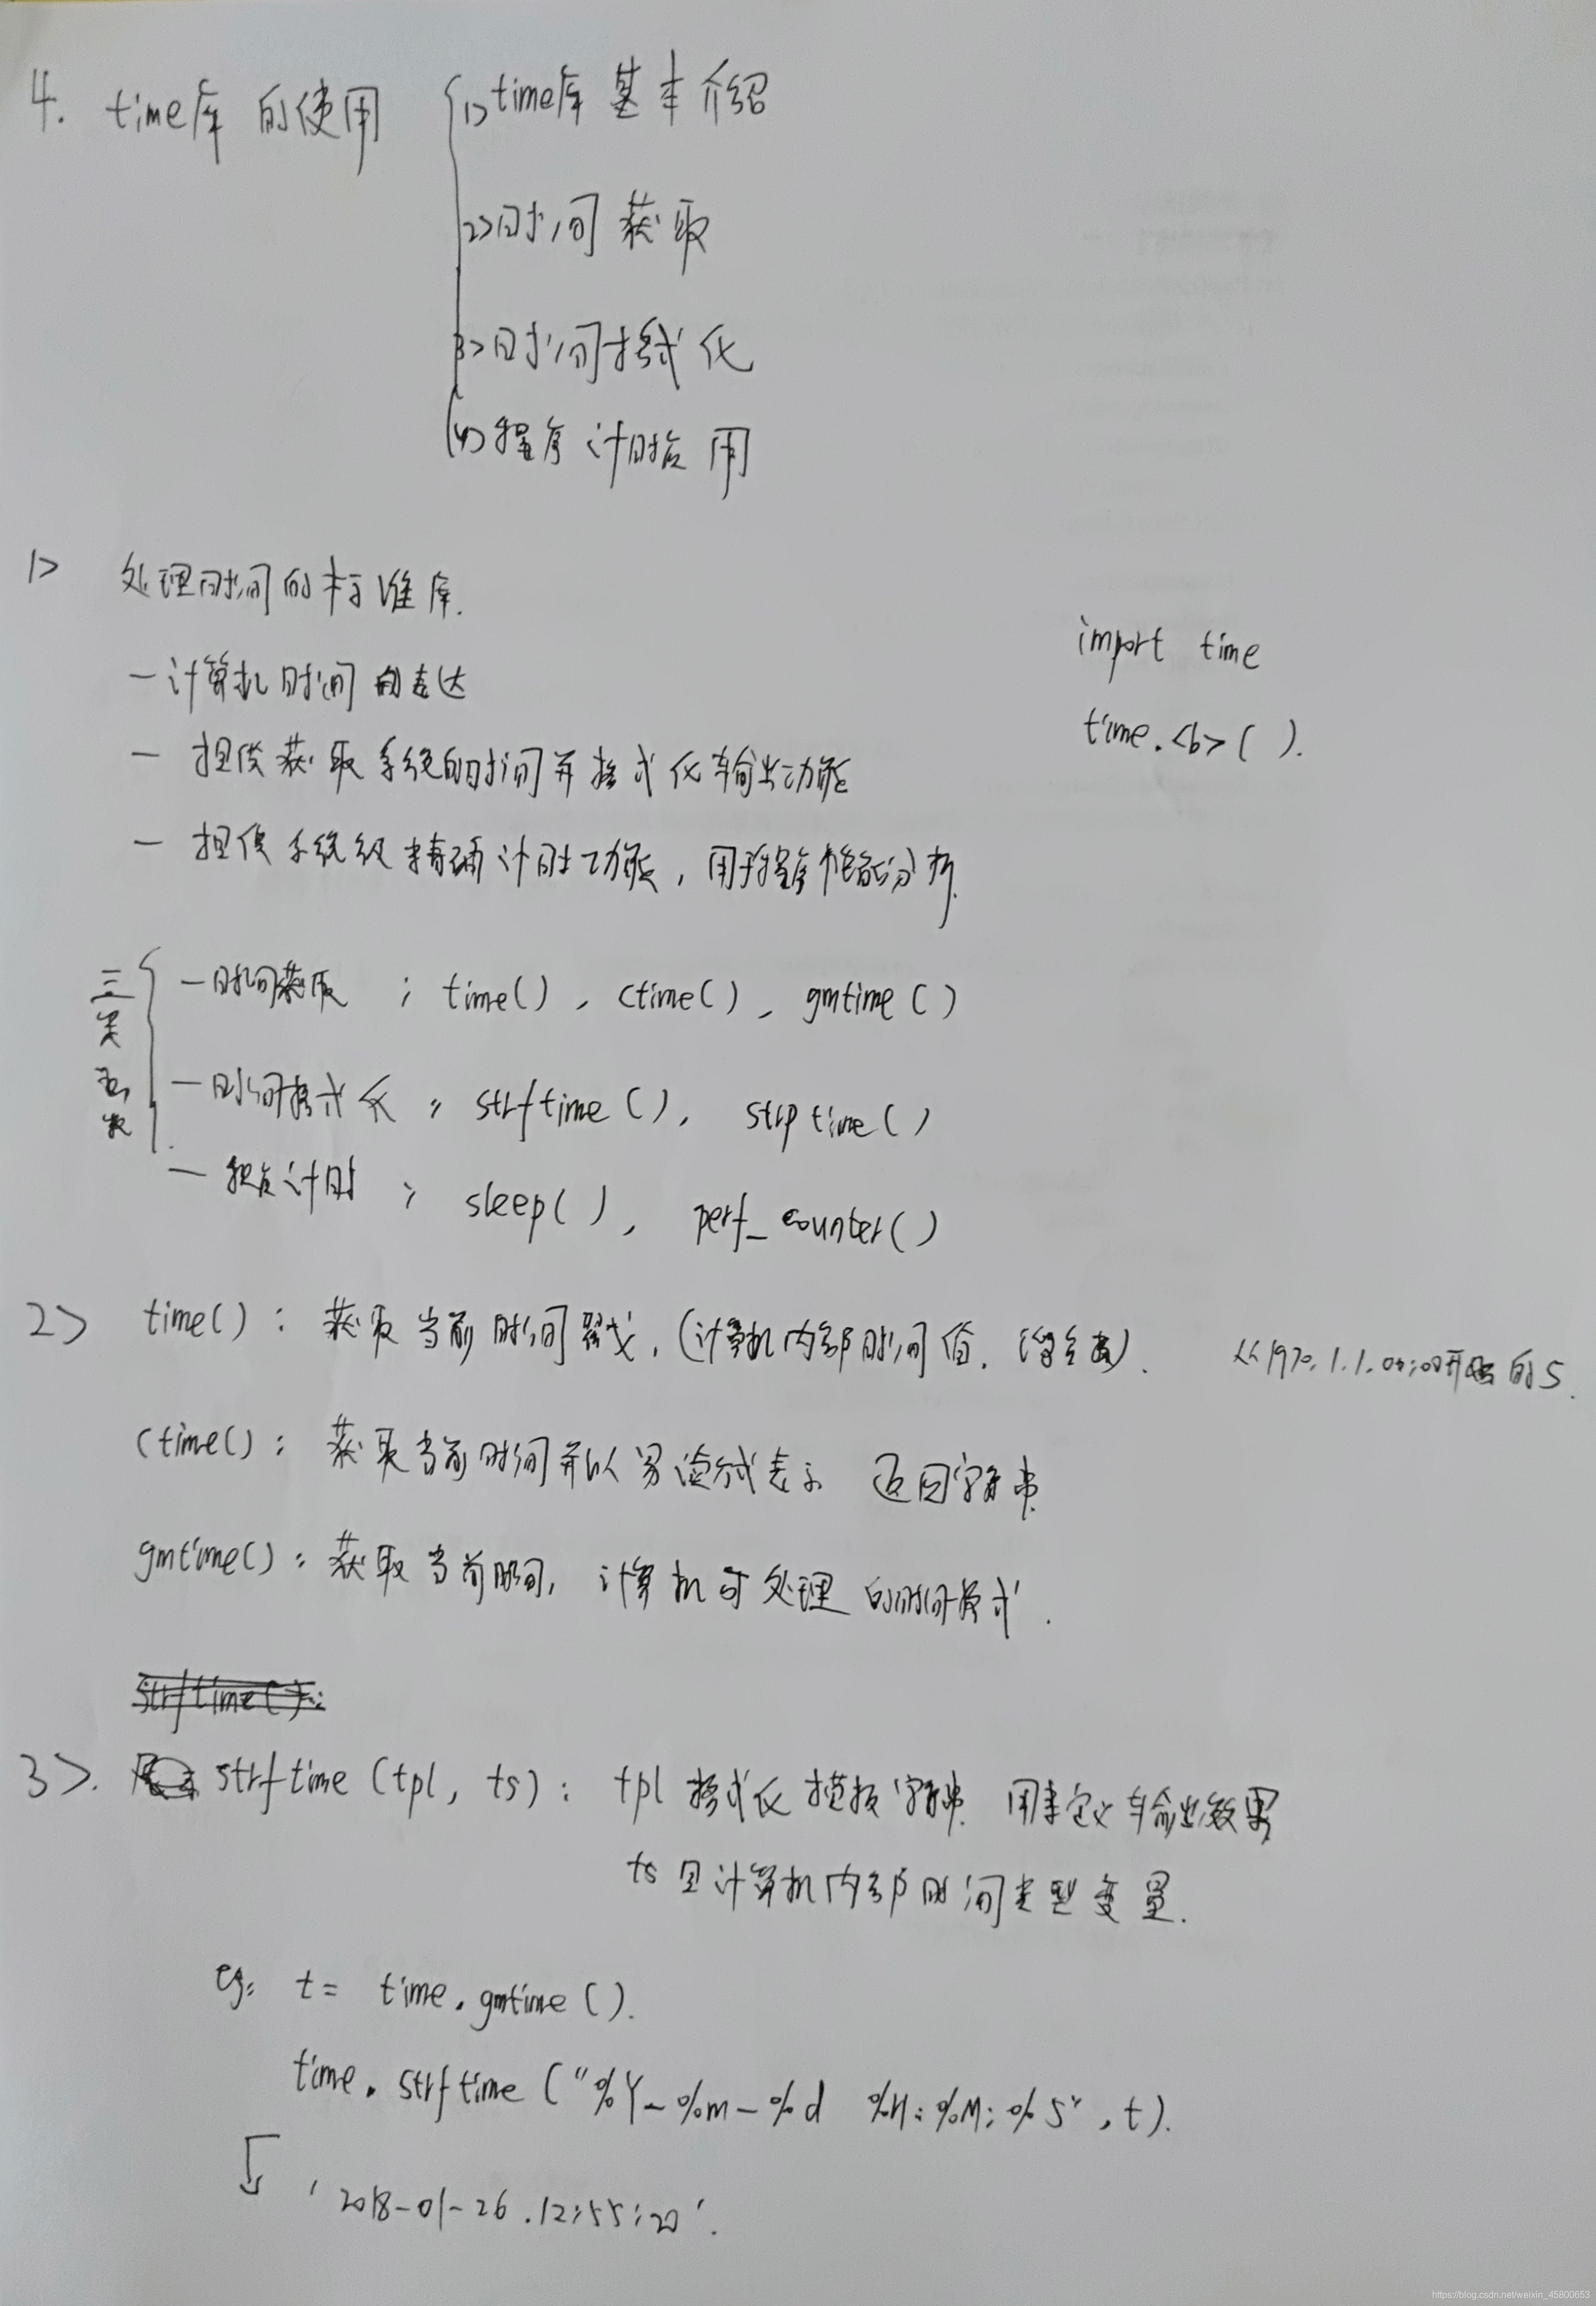 4. time库的使用
1> time库基本介绍
2> 时间获取
3> 时间格式化
4> 程序计时应用
1> 处理时间的标准库.
import time
- 计算机时间的表达
time.<b>( ).
- 提供获取系统的时间并格式化输出功能
- 提供系统级精确计时功能, 用于程序性能分析.
三类函数
- 时间获取 : time(), ctime(), gmtime()
- 时间格式化 : strftime(), strptime()
- 程序计时 : sleep(), perf_counter()
2> time() : 获取当前时间戳, (计算机内部时间值. 浮点数). 从1970.1.1.00:00开始的S.
ctime() : 获取当前时间并以易读方式表示 返回字符串.
gmtime() : 获取当前时间, 计算机可处理的时间格式.
strftime():
3>. strftime (tpl, ts) : tpl 格式化模板字符串. 用来定义输出效果
ts 是计算机内部时间类型变量.
eg: t = time.gmtime().
time.strftime("%Y-%m-%d %H:%M:%S", t).
'2018-01-26.12:55:20'.
https://blog.csdn.net/weixin_45800653